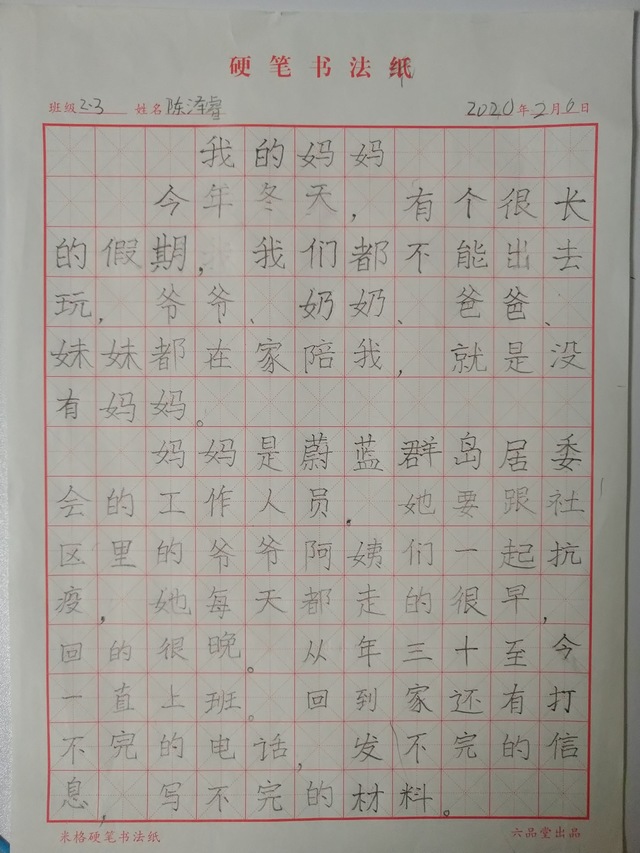 硬笔书法纸
班级2.3 姓名陈泽睿 2020年2月6日
我的妈妈
今年冬天，有个很长
的假期，我们都不能出去
玩，爷爷、奶奶、爸爸、
妹妹都在家陪我，就是没
有妈妈。
妈妈是蔚蓝群岛居委
会的工作人员，她要跟社
区里的爷爷阿姨们一起抗
疫，她每天都走的很早，
回的很晚。从年三十至今
一直上班。回到家还有打
不完的电话，发不完的信
息，写不完的材料。
米格硬笔书法纸 六品堂出品